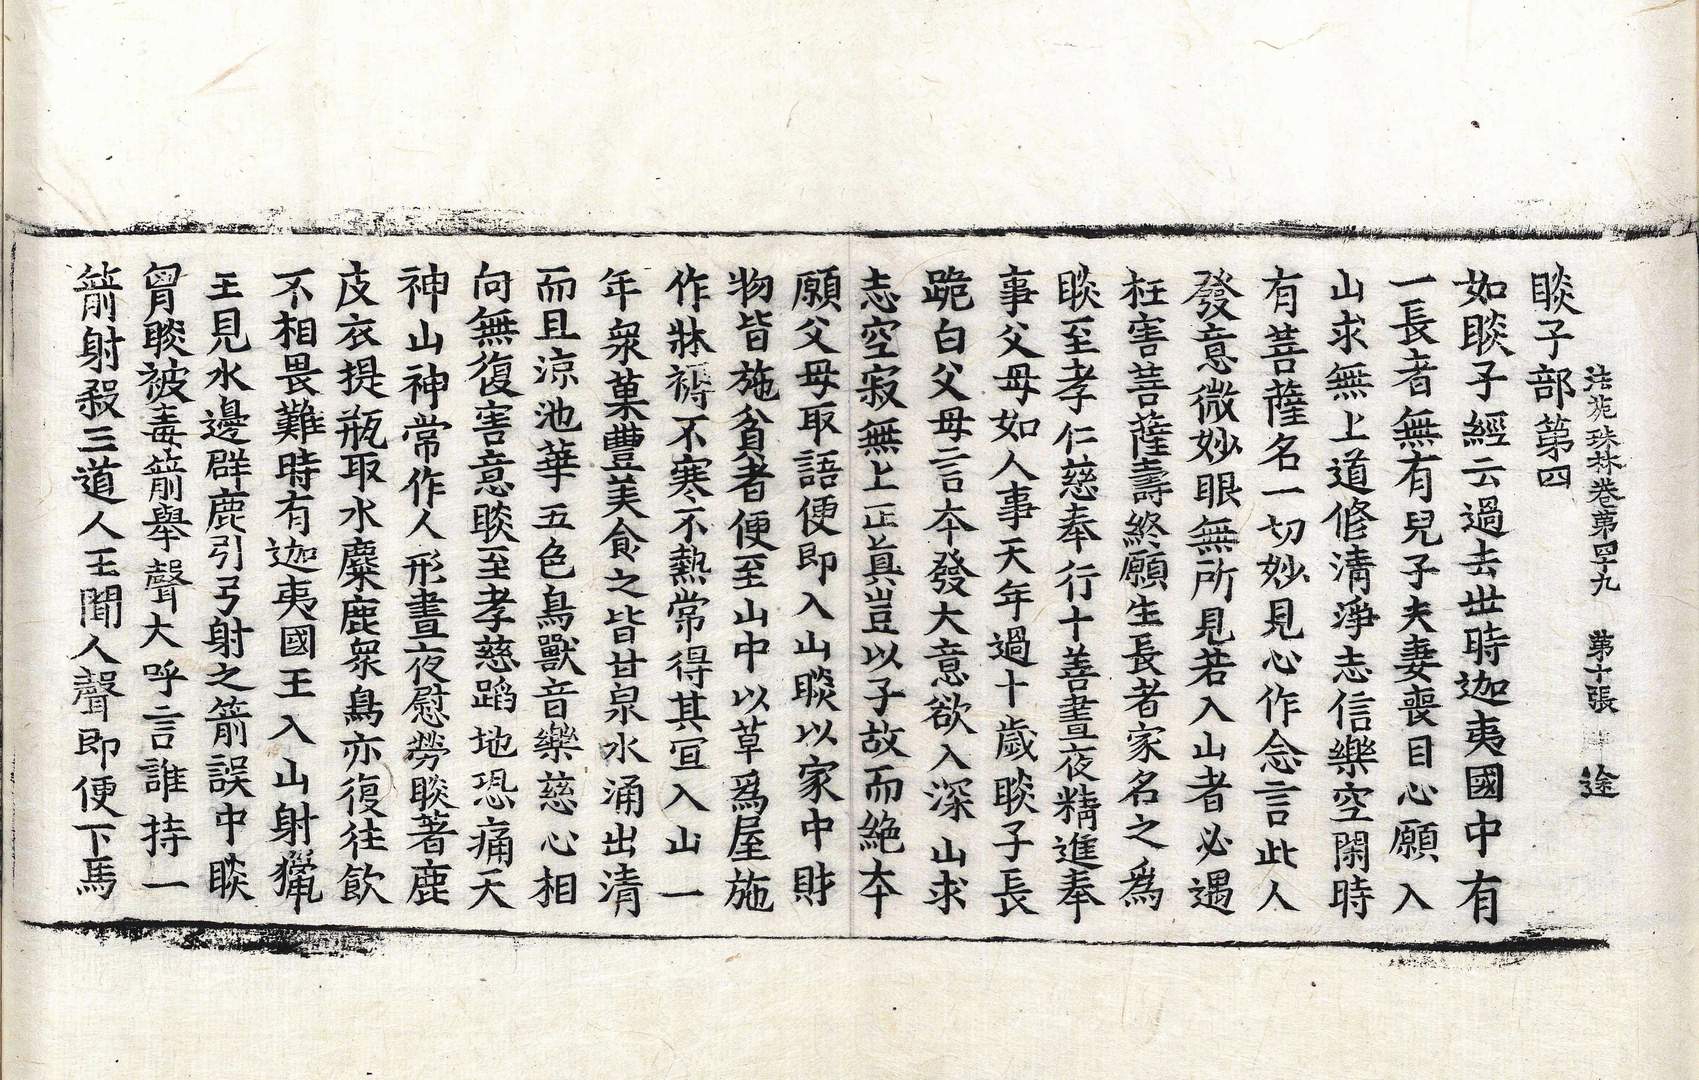 法苑珠林卷第四十九　第十張　途
睒子部第四
如睒子經云過去世時迦夷國中有
一長者無有兒子夫妻喪目心願入
山求無上道修清淨志信樂空閑時
有菩薩名一切妙見心作念言此人
發意微妙眼無所見若入山者必遇
枉害菩薩壽終願生長者家名之爲
睒至孝仁慈奉行十善晝夜精進奉
事父母如人事天年過十歲睒子長
跪白父母言本發大意欲入深山求
志空寂無上正眞豈以子故而絶本
願父母取語便即入山睒以家中財
物皆施貧者便至山中以草爲屋施
作牀褥不寒不熱常得其宜入山一
年衆菓豊美食之皆甘泉水涌出清
而且凉池華五色鳥獸音樂慈心相
向無復害意睒至孝慈蹈地恐痛天
神山神常作人形晝夜慰勞睒著鹿
皮衣提瓶取水麋鹿衆鳥亦復往飲
不相畏難時有迦夷國王入山射獵
王見水邊群鹿引弓射之箭誤中睒
胷睒被毒箭舉聲大呼言誰持一
箭射殺三道人王聞人聲即便下馬